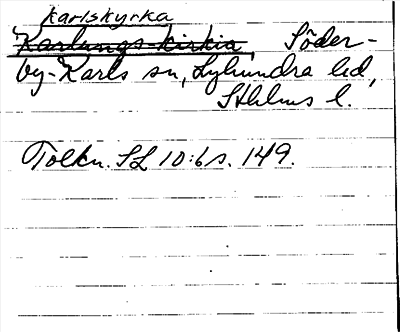 Karlskyrka
Karlungs-kirkia, Söder-
by-Karls sn, Lyhundra hd,
Sthlms l.
Tolkn. SL 10:6 s. 149.